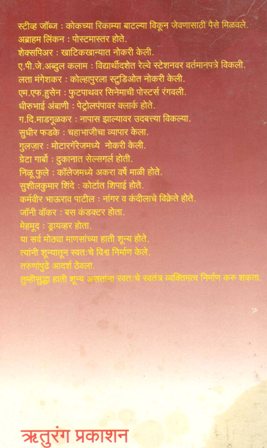 स्टीव्ह जॉब्ज : कोकच्या रिकाम्या बाटल्या विकून जेवणासाठी पैसे मिळवले.
अब्राहम लिंकन : पोस्टमास्तर होते.
शेक्सपिअर : खाटिकखान्यात नोकरी केली.
ए.पी.जे.अब्दुल कलाम : विद्यार्थीदशेत रेल्वे स्टेशनवर वर्तमानपत्रे विकली.
लता मंगेशकर : कोल्हापुरला स्टुडिओत नोकरी केली.
एम.एफ.हुसेन : फुटपाथवर सिनेमाची पोस्टर्स रंगवली.
धीरुभाई अंबाणी : पेट्रोलपंपावर क्लार्क होते.
ग.दि.माडगूळकर : नापास झाल्यावर उदबत्त्या विकल्या.
सुधीर फडके : चहाभाजीचा व्यापार केला.
गुलजार : मोटारगॅरेजमध्ये नोकरी केली.
ग्रेटा गार्बो : दुकानात सेल्सगर्ल होती.
निळू फुले : कॉलेजमध्ये अकरा वर्षे माळी होते.
सुशीलकुमार शिंदे : कोर्टात शिपाई होते.
कर्मवीर भाऊराव पाटील : नांगर व कंदीलाचे विक्रेते होते.
जॉनी वॉकर : बस कंडक्टर होता.
मेहमूद : ड्रायव्हर होता.
या सर्व मोठ्या माणसांच्या हाती शून्य होते.
त्यांनी शून्यातून स्वतःचे विश्व निर्माण केले.
तरुणांपुढे आदर्श ठेवला.
तुम्हीसुद्धा हाती शून्य असतांना स्वतःचे स्वतंत्र व्यक्तिमत्व निर्माण करु शकता.
ऋतुरंग प्रकाशन